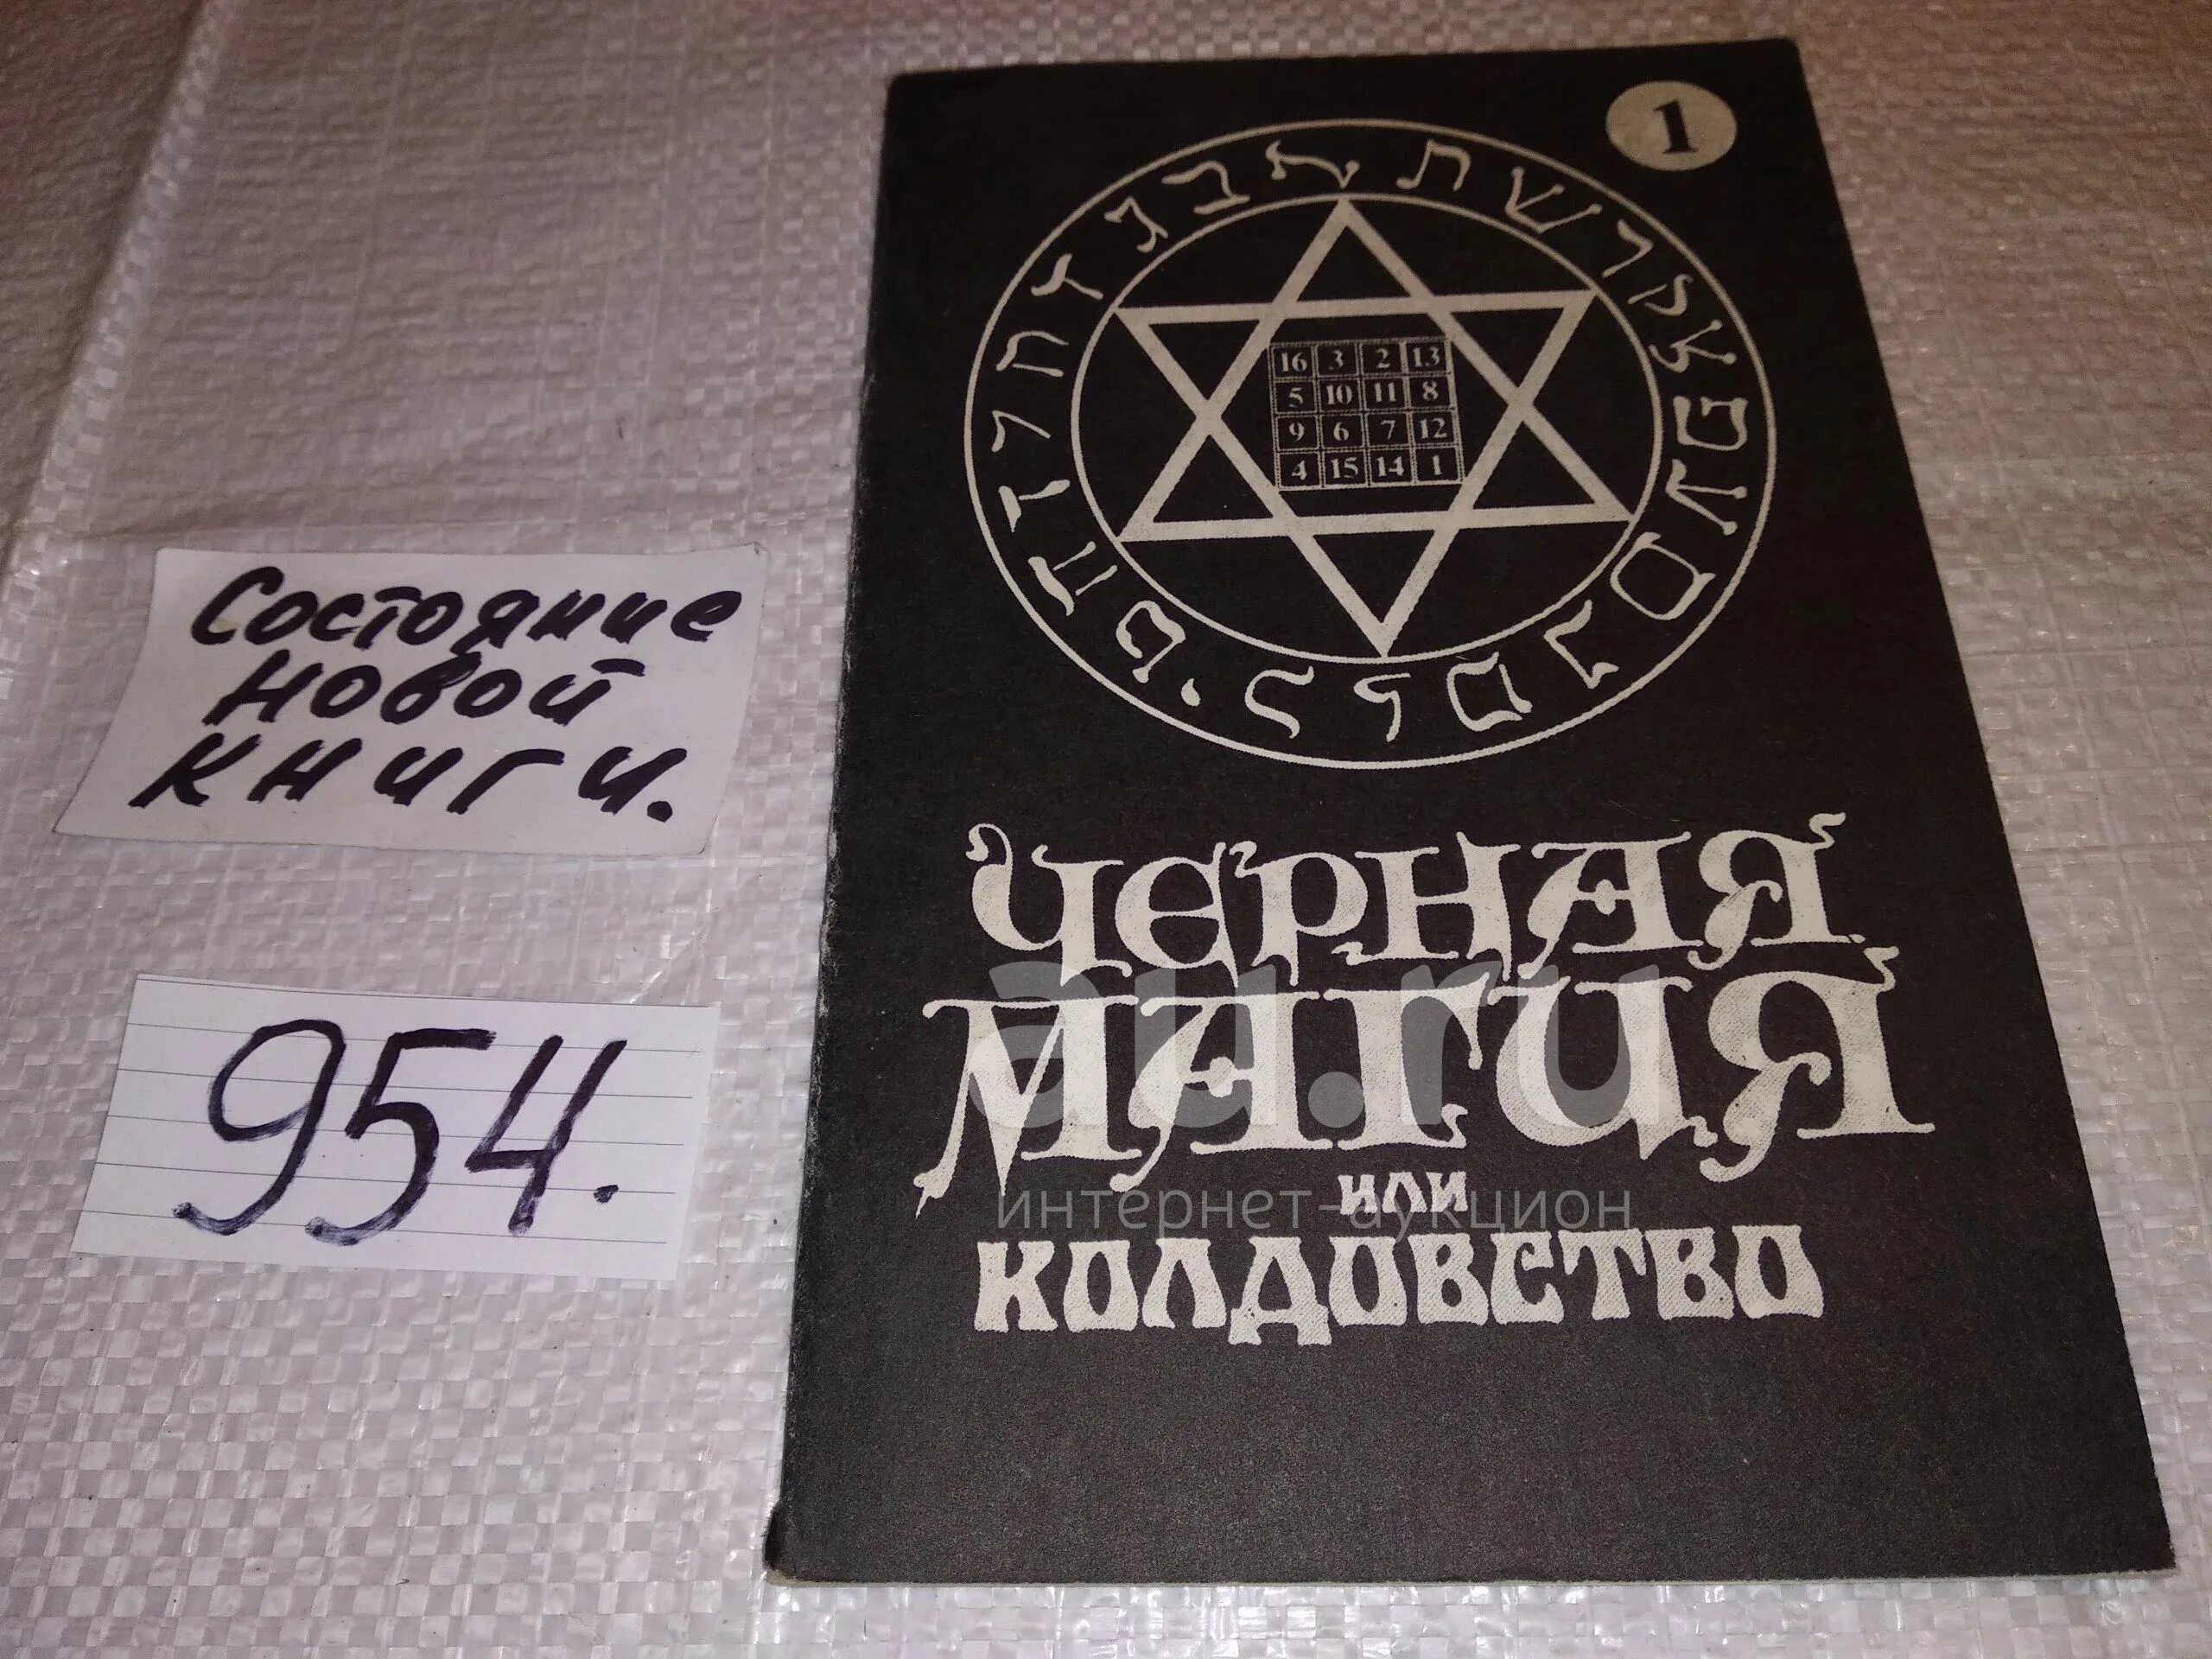 1
16 3 2 13
5 10 11 8
9 6 7 12
4 15 14 1
ЧЕРНАЯ
МАГИЯ
или
КОЛДОВСТВО
au.ru
интернет-аукцион
Состояние
новой
книги.
954.